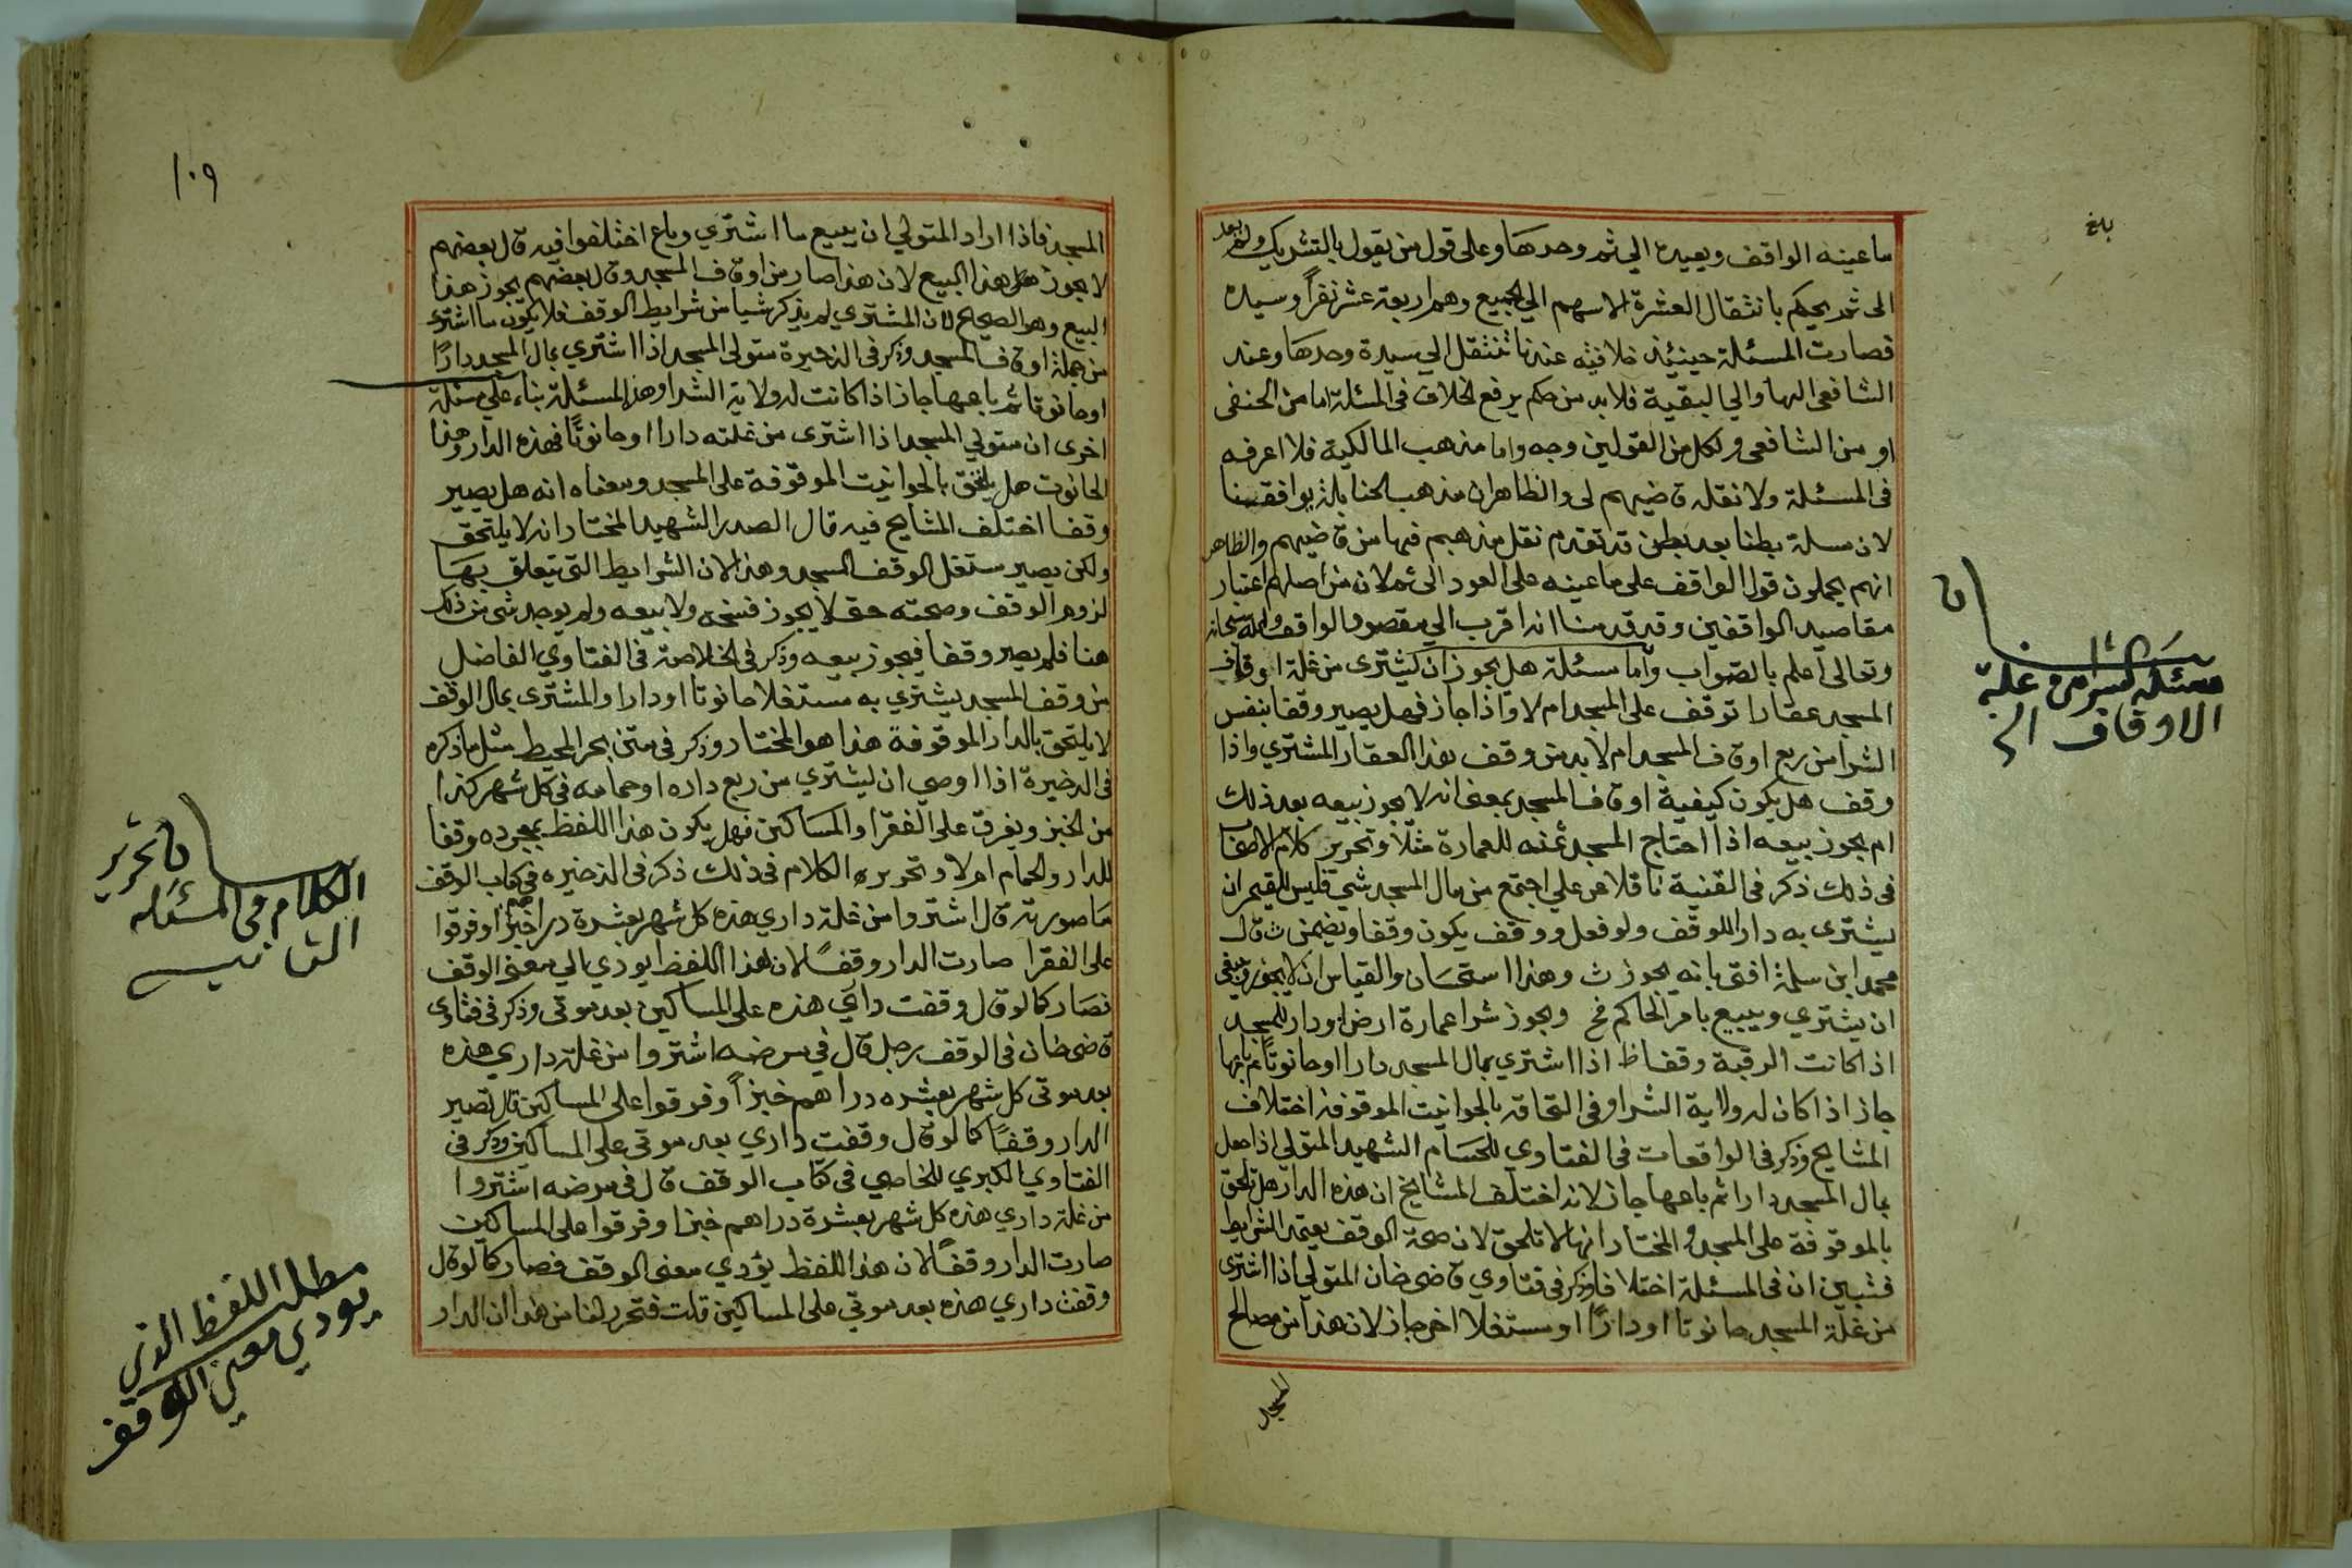 بلغ
ما عينه الواقف ويعيده الي ثمر وحدها وعلى قول من يقول بالتشريك
الى ثمر يحكم بانتقال العشرة الاسهم الي الجميع وهم اربعة عشر نفرًا وسيده
فصارت المسئلة حينئذ خلافيه عندنا تنتقل الي سيدة وحدها وعند
الشافعي اليها والي البقية فلا بد من حكم يرفع الخلاف في المسئلة اما من الحنفى
او من الشافعي ولكل من القولين وجه واما مذهب المالكية فلا اعرفه
فى المسئلة ولا نقله قاضيهم لى والظاهر ان مذهب الحنابلة يوافقنا
لان مسلة بطنا بعد بطن قد تقدم نقل مذهبهم فيها من قاضيهم والظاهر
انهم يحملون قول الواقف على ما عينه على العود الى ثمر لان من اصلهم اعتبار
مقاصد الواقفين وقد قدمنا انه اقرب الي مقصود الواقف والله سبحانه
وتعالى اعلم بالصواب واما مسئلة هل يجوز ان يشترى من غلة اوقاف
المسجد عقارا توقف على المسجد ام لا واذا جاز فهل يصير وقفا بنفس
الشرا من ريع اوقاف المسجد ام لا بد من وقف لهذا العقار المشتري واذا
وقف هل يكون كيفية اوقاف المسجد بمعنى انه لا يجوز بيعه بعد ذلك
ام يجوز بيعه اذا احتاج المسجد ثمنه للعمارة مثلا وتحرير كلام الاصحاب
فى ذلك ذكر فى القنية ناقلا عن علي اجتمع من مال المسجد شي فليس للقيم ان
يشترى به دارا للوقف ولو فعل ووقف يكون وقفا ويضمن ث قال
محمد ابن سلمة افتى بانه يجوز ث وهذا استحسان والقياس ان لا يجوز وينبغي
ان يشتري ويبيع بامر الحاكم فخ ويجوز شرا عمارة ارض او دار للمسجد
اذا كانت الرقبة وقفا ظ اذا اشتري بمال المسجد دارا او حانوتا ثم باعها
جاز اذا كان له ولاية الشرا وفي التحاقه بالحوانيت الموقوفة اختلاف
المشايخ وذكر فى الواقعات فى الفتاوي للحسام الشهيد المتولي اذا
بمال المسجد دارا ثم باعها جاز لانه اختلف المشايخ ان هذه الدار هل تلحق
بالموقوفة على المسجد والمختار انها لا تلحق لان صحة الوقف يعتمد الشرايط
فتبين ان فى المسئلة اختلافا وذكر فى فتاوي قاضى خان المتولي اذا اشترى
من غلة المسجد حانوتا او دارًا او مستغلا اخر جاز لان هذا من مصالح
المسجد
مسئلة الشرا من غلة
الاوقاف الخ
١٠٩
المسجد فاذا اراد المتولي ان يبيع ما اشتري وباع اختلفوا فيه قال بعضهم
لا يجوز هذا البيع لان هذا صار من اوقاف المسجد وقال بعضهم يجوز هذا
البيع وهو الصحيح لان المشتري لم يذكر شيا من شرايط الوقف فلا يكون ما اشترى
من جملة اوقاف المسجد وذكر فى الذخيرة متولى المسجد اذا اشتري بمال المسجد دارًا
او حانوتا ثم باعها جاز اذا كانت له ولاية الشرا وهذه المسئلة بناء على مسئلة
اخرى ان متولي المسجد اذا اشترى من غلته دارا او حانوتًا فهذه الدار وهذا
الحانوت هل يلتحق بالحوانيت الموقوفة على المسجد ومعناه انه هل يصير
وقفا اختلف المشايخ فيه قال الصدر الشهيد المختار انه لا يلتحق
ولكن يصير مستغل الوقف المسجد وهذا لان الشرايط التى تتعلق بها
لزوم الوقف وصحته حتى لا يجوز فسخه ولا بيعه ولم يوجد شي من ذلك
هنا فلم يصر وقفا فيجوز بيعه وذكر فى الخلاصة فى الفتاوي الفاضل
من وقف المسجد يشتري به مستغلا حانوتا او دارا والمشترى بمال الوقف
لا يلتحق بالدار الموقوفة هذا هو المختار وذكر فى متن بحر المحيط مثل ما ذكره
فى الذخيرة اذا اوصي ان يشتري من ريع داره او حمامه فى كل شهر كذا
من الخبز ويفرق على الفقرا والمساكين فهل يكون هذا اللفظ بمجرده وقفا
للدار والحمام ام لا وتحريره الكلام فى ذلك ذكر فى الذخيره فى كتاب الوقف
ما صورته قال اشتروا من غلة داري هذه كل شهر بعشرة دراهم خبزا وفرقوا
على الفقرا صارت الدار وقفًا لان هذا اللفظ يودي الي معنى الوقف
فصار كما لو قال وقفت داري هذه على المساكين بعد موتى وذكر فى فتاوى
قاضى خان فى الوقف رجل قال في مرضه اشتروا من غلة داري هذه
بعد موتى كل شهر بعشره دراهم خبزًا وفرقوا على المساكين قال تصير
الدار وقفًا كما لو قال وقفت داري بعد موتي على المساكين وذكر فى
الفتاوي الكبري للخاصي فى كتاب الوقف قال فى مرضه اشتروا
من غلة داري هذه كل شهر بعشرة دراهم خبزا وفرقوا على المساكين
صارت الدار وقفًا لان هذا اللفظ يؤدي معنى الوقف فصار كما لو قال
وقفت داري هذه بعد موتي على المساكين قلت فتحرر لنا من هذا ان الدار
تحرير
الكلام فى المسئله
الثانيه
مطلب اللفظ الذي
يودي معنى الوقف